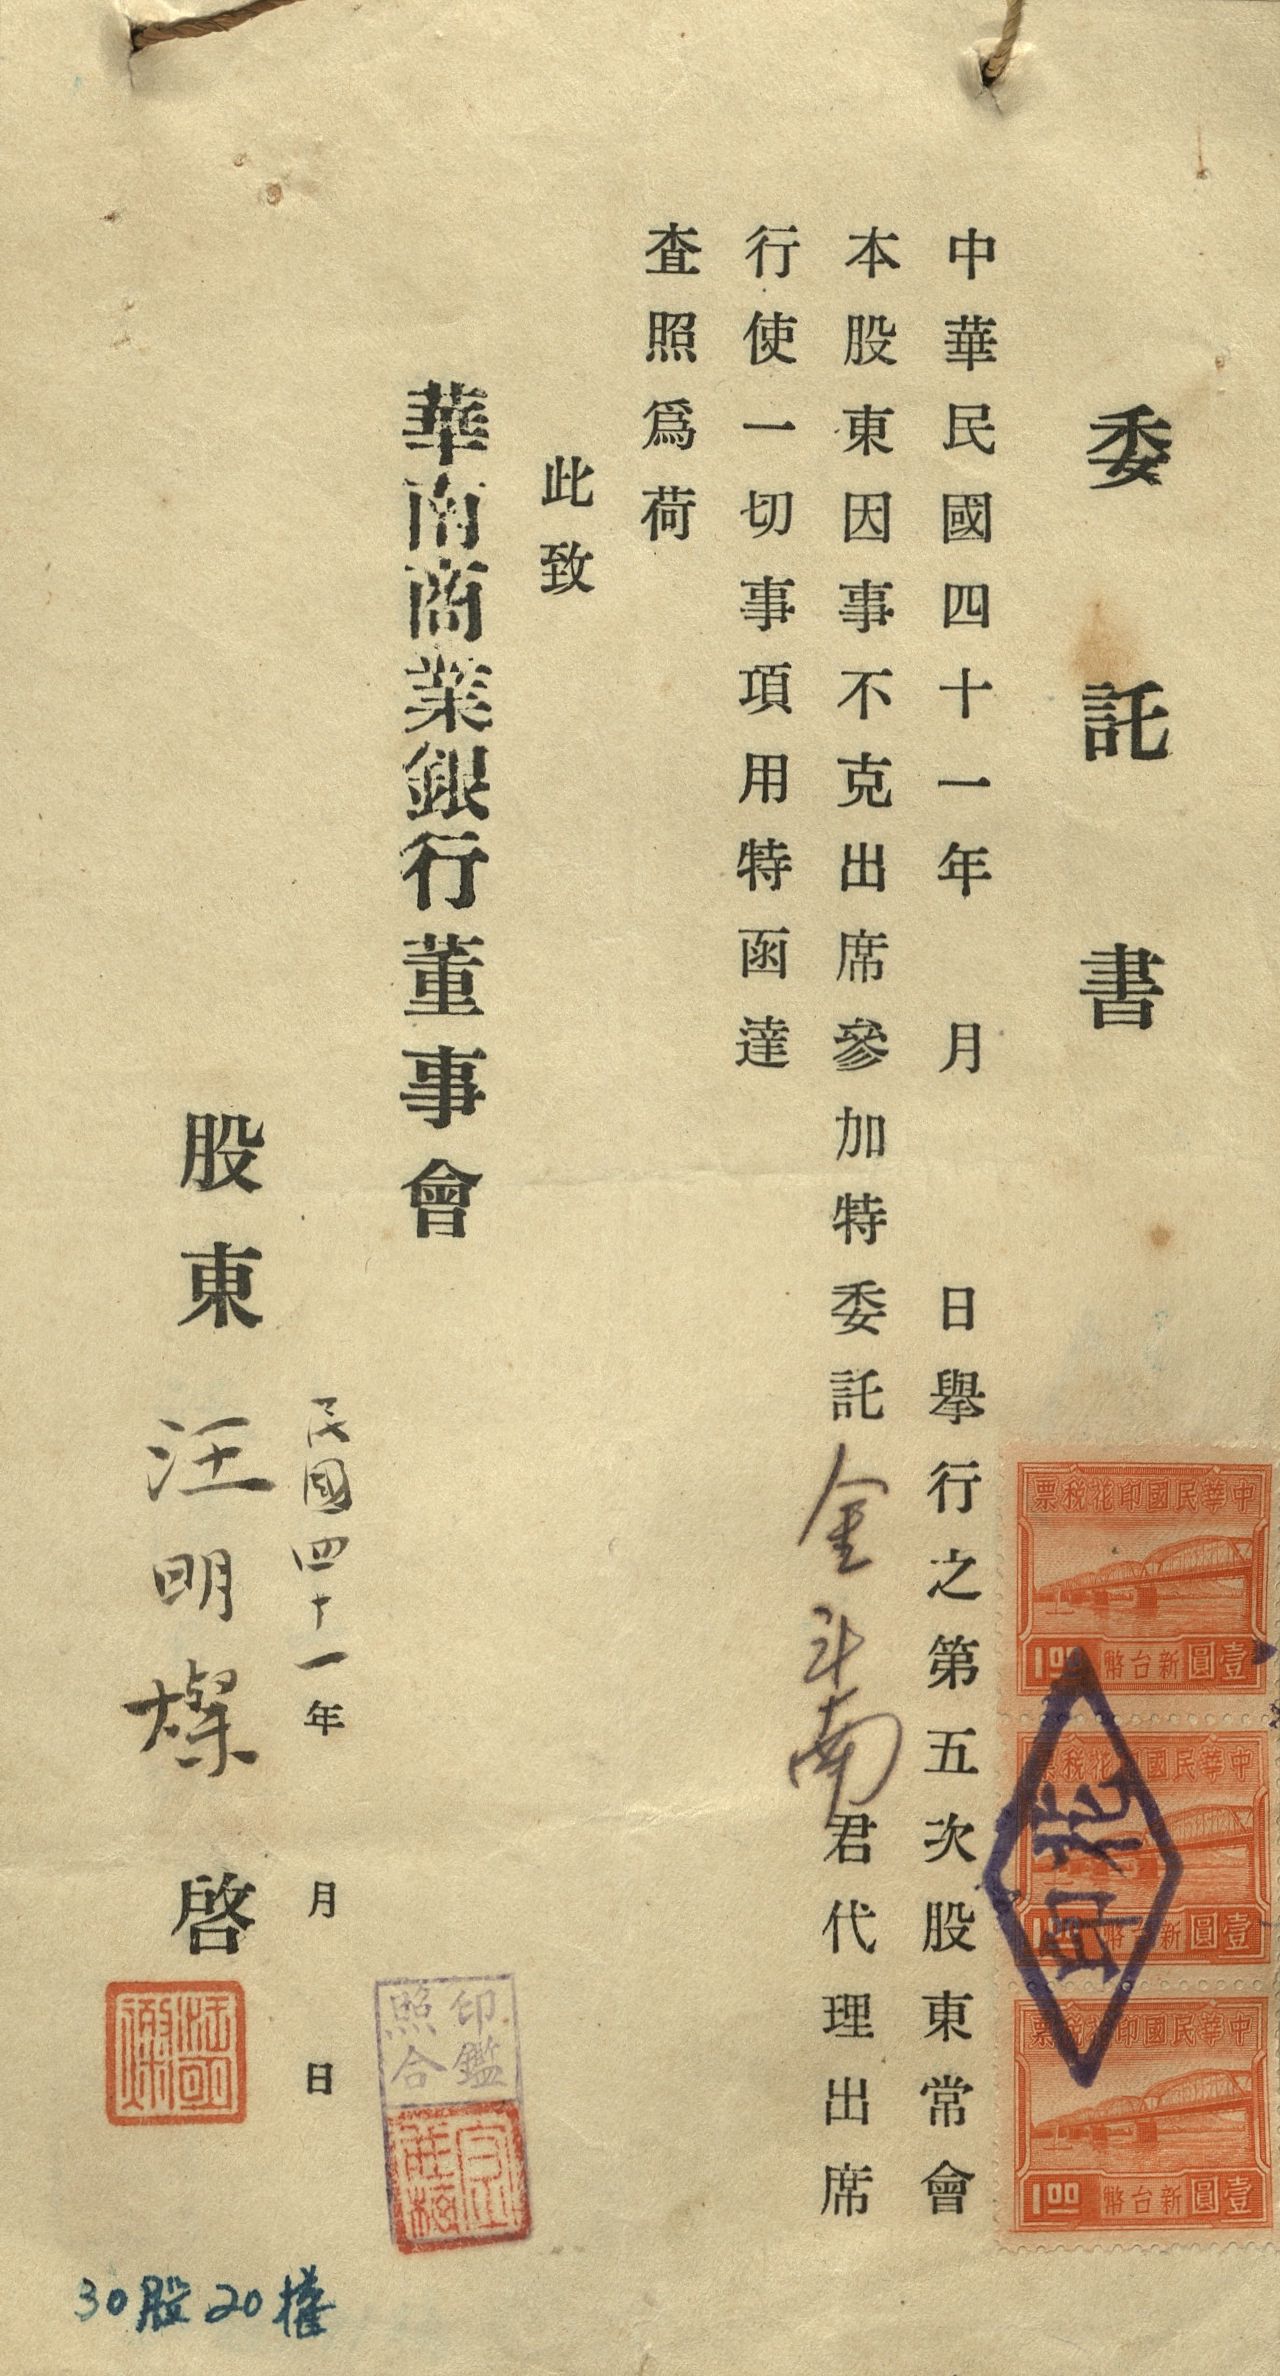 委託書
中華民國四十一年 月 日舉行之第五次股東常會
本股東因事不克出席參加特委託金斗南君代理出席
行使一切事項用特函達
查照爲荷
此致
華南商業銀行董事會
民國四十一年 月 日
股東 汪明燦 啓
印鑑
照合
30股20權
中華民國印花稅票
壹圓新台幣1.00
中華民國印花稅票
壹圓新台幣1.00
中華民國印花稅票
壹圓新台幣1.00
印花